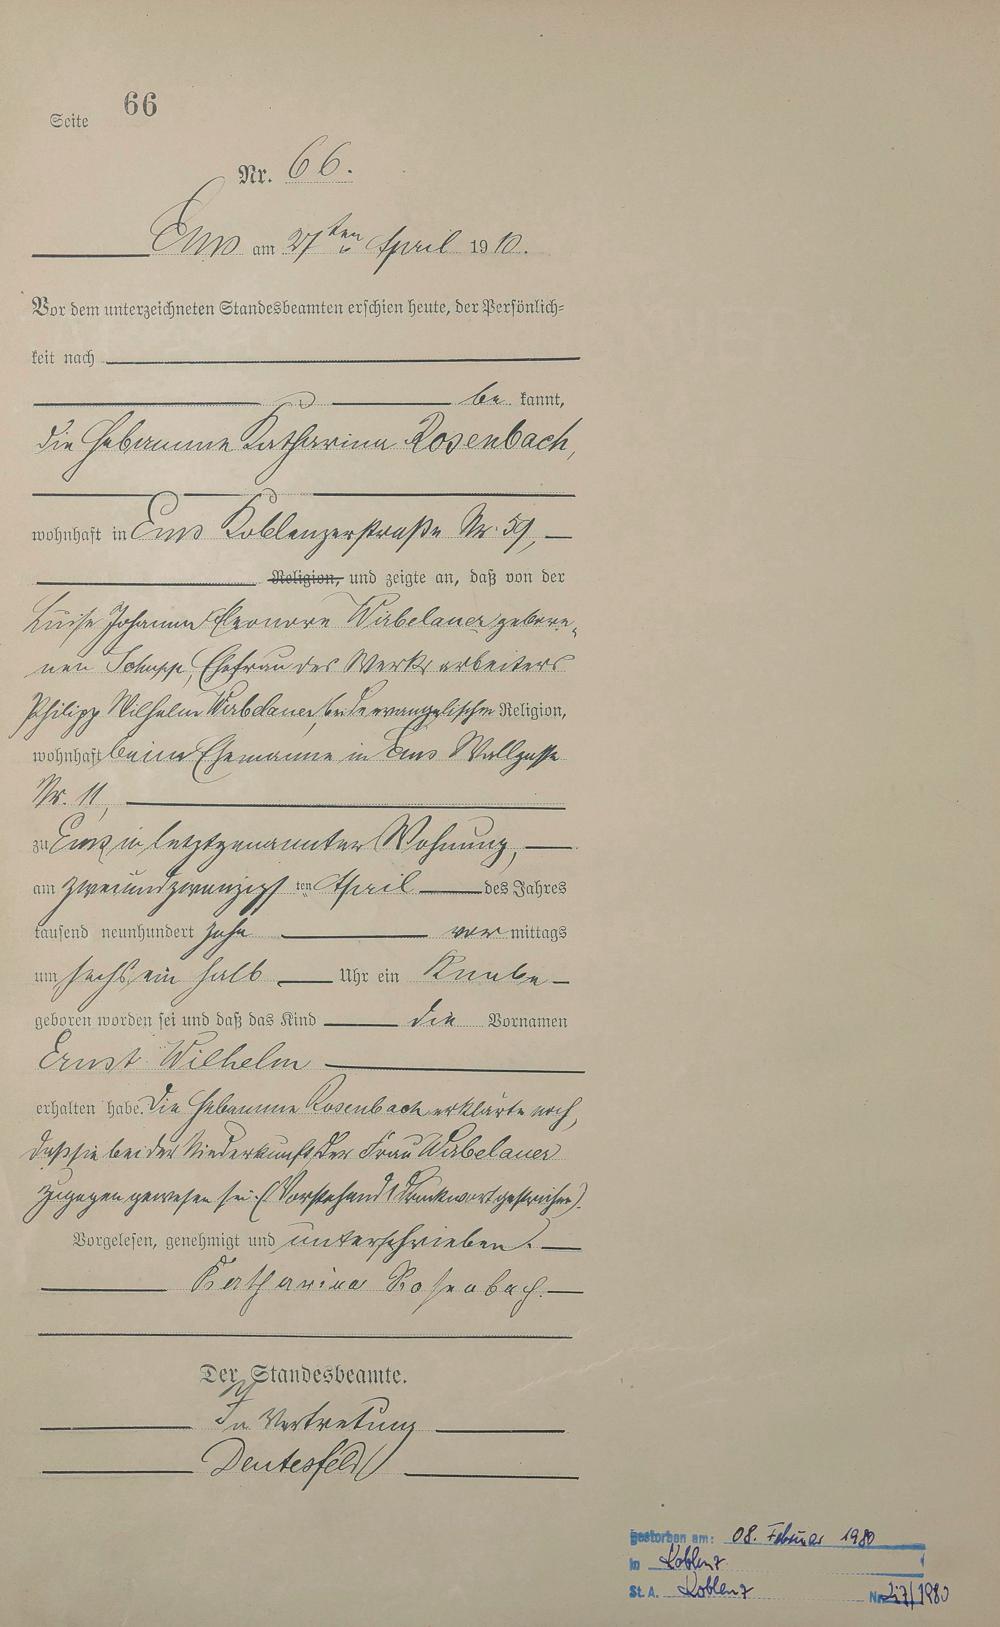 Seite 66
Nr. 66.
Ems am 27ten April 1910.
Vor dem unterzeichneten Standesbeamten erschien heute, der Persönlich-
keit nach
be kannt,
die Hebamme Katharina Rosenbach,
wohnhaft in Ems Koblenzerstraße Nr. 59,
Religion, und zeigte an, daß von der
Luise Johanna Eleonore Wirbelauer, gebore-
nen Schupp, Ehefrau des Werksarbeiters
Philipp Wilhelm Wirbelauer, beide evangelischen Religion,
wohnhaft beim Ehemanne in Ems Wallgasse
Nr. 11,
zu Ems in letztgenannter Wohnung,
am zweiundzwanzigsten April des Jahres
tausend neunhundert zehn vor mittags
um sechs ein halb Uhr ein Knabe
geboren worden sei und daß das Kind die Vornamen
Ernst Wilhelm
erhalten habe. Die Hebamme Rosenbach erklärte noch,
daß sie bei der Niederkunft der Frau Wirbelauer
zugegen gewesen sei. (Vorstehend 1 Druckwort gestrichen).
Vorgelesen, genehmigt und unterschrieben.
Katharina Rosenbach.
Der Standesbeamte.
In Vertretung
gestorben am: 08. Februar 1980
in Koblenz
St. A. Koblenz Nr.